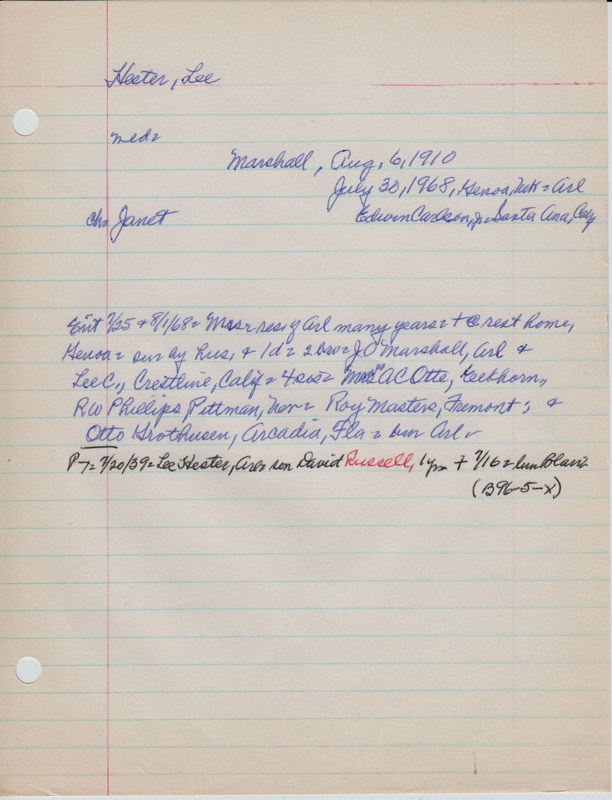 Hester, Lee
med=
Marshall, Aug. 6, 1910
July 30, 1968, Genoa, Neb = Arl
ch= Janet Edwin Carlson, Jr = Santa Ana, Calif
Ent 7/25 & 8/1/68 = Mrs = res of Arl many years = + @ rest home,
Genoa = sur by hus, & 1d = 2 bro = J O Marshall, Arl &
Lee C., Crestline, Calif = 4 sis = Mrs A C Otte, Elkhorn,,
R W Phillips, Pittman, Nev = Roy Masters, Fremont; &
Otto Grothusen, Arcadia, Fla = bur Arl
PT = 7/20/39 = Lee Hester, Arl = son David Russell, 1 yr + 7/16 = bur Blair
(B96-5-X)